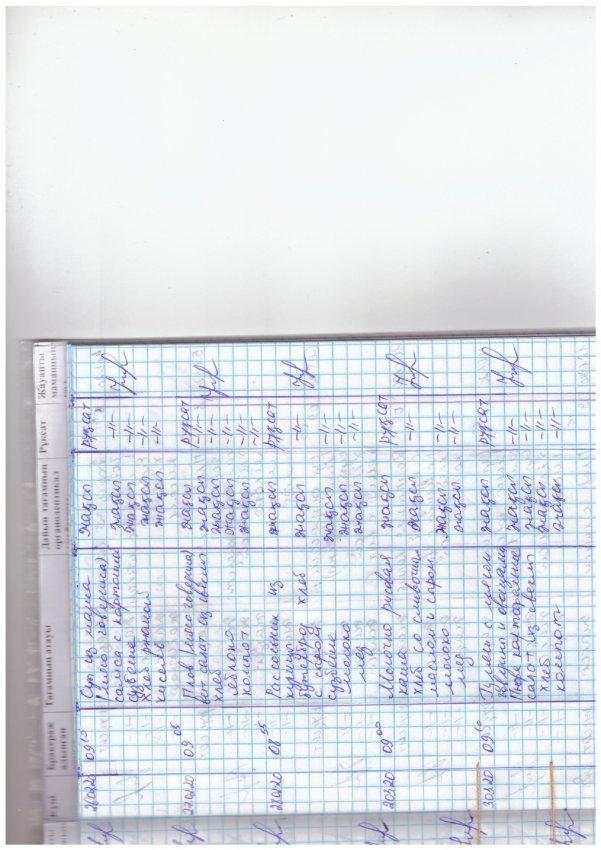 күні
Бракераж алынған
Тағамның атауы
Дайын тағамның органолептикал
Рұқсат
Жауапты маманның
0910
Суп из маша
(мясо говядина)
хлеб ржаной
кисель
жақсы
жақсы
жақсы
жақсы
жақсы
рұқсат
-//-
-//-
-//-
-//-
0905
Плов (мясо говядина)
салат из свеклы
хлеб
яблоко
компот
жақсы
жақсы
жақсы
жақсы
жақсы
рұқсат
-//-
-//-
-//-
-//-
0855
Рассольник из
курицы
Бутерброд хлеб
с сыром
молоко
жақсы
жақсы
жақсы
жақсы
жақсы
рұқсат
-//-
-//-
-//-
-//-
0900
Молочно рисовая
каша
хлеб со сливочным
маслом и сыром
молоко
жақсы
жақсы
жақсы
жақсы
рұқсат
-//-
-//-
-//-
30.3.20
0910
с мясом
говядины и овощами
Пюре картофельное
салат из свеклы
хлеб
компот
жақсы
жақсы
жақсы
жақсы
жақсы
рұқсат
-//-
-//-
-//-
-//-